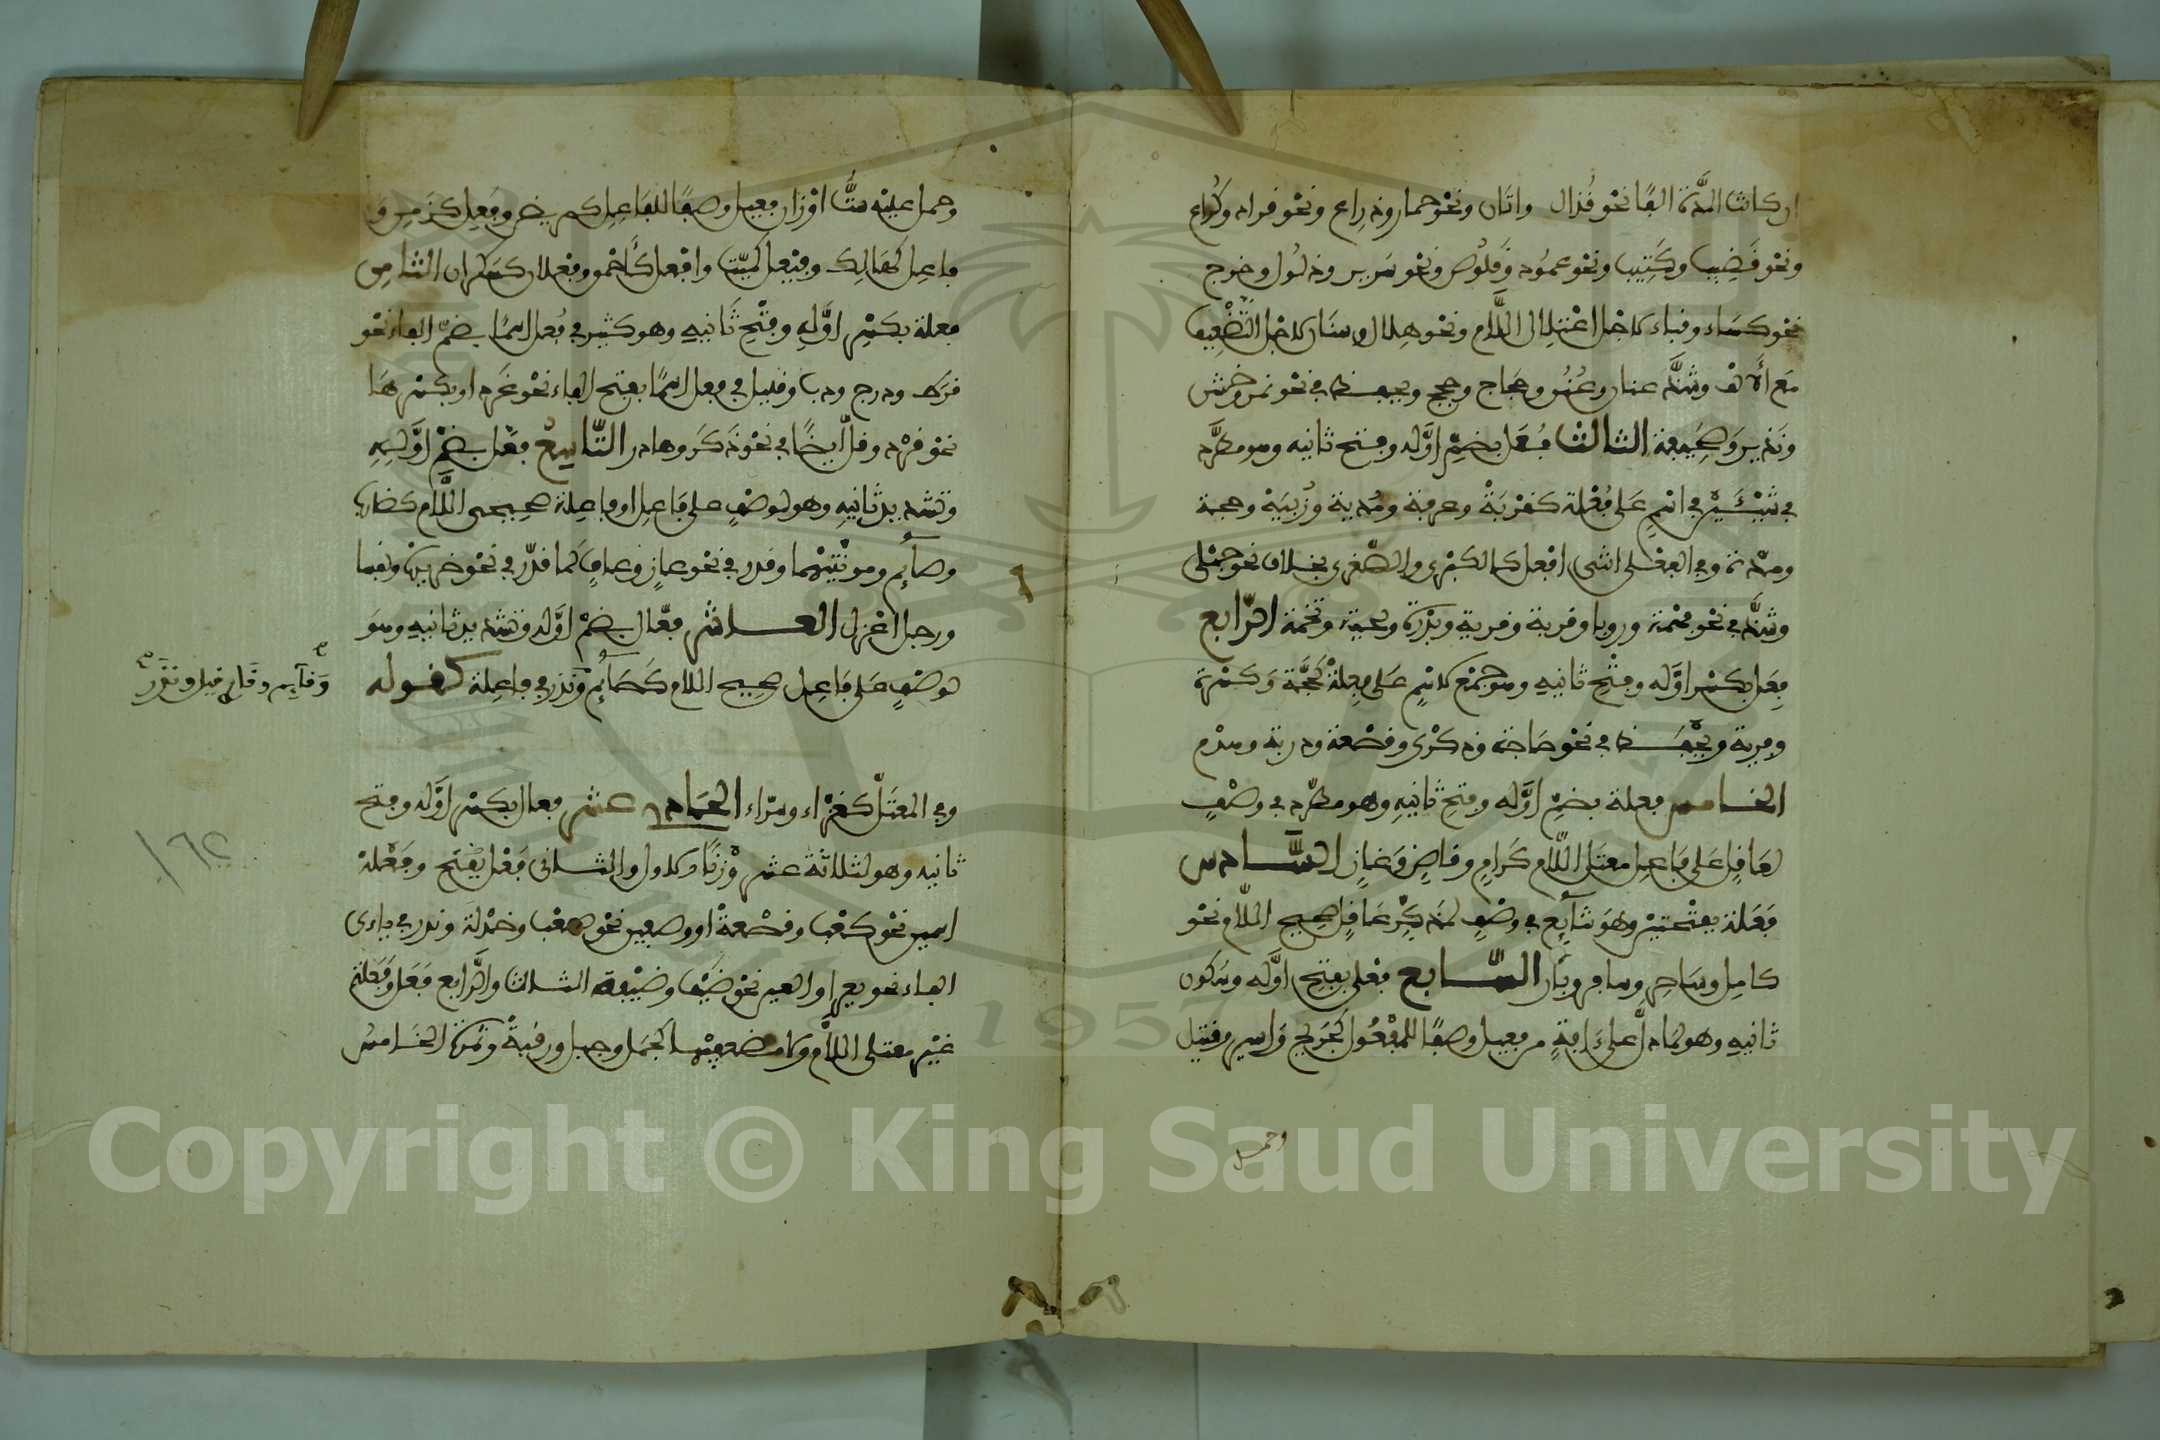 ان كانت المدّة الفًا نحو قُذال واتَان ونحْو حمار وذراع ونحْو قراد وكُراع
ونحْو قَضِيب وكَثِيب ونحْو عمُود وقلُوص ونحو سَرير وذلُول وخرج
نحْو كسَاء وقباء لاجل اعْتلال اللَّام ونحْو هِلال وسنَان لاجل التَّضْعِيف
مَع الالف وشذَّ عنان وعُنُن وحجاج وحجج ويحفظ في نحْو نمر وخشن
ونَذير وصَحِيفة الثالث فُعَل بضمِّ اوَّله وفتح ثانيه وهو مطَّرد
في شَيْئَيْن في اسْمٍ عَلى فُعْلة كغرْبَة وعرفة ومُدْية وزُبيَة وحجة
ومدّة وفي الفعْلى انثى افعل كالكبْرى والصّغْرى بخلاف نحو حبْلى
وشذَّ في نحْو بهْمة ورويا وقرية وبدْرة ولحية وتخمة الرّابع
فِعَل بكسْر اوَّله وفتْح ثانيهِ وهو جمْع لاسْمٍ عَلى فِعْلَة كحجَّة وَكسْرة
وفرية ويُحْفَظ في نحْو حاجَة وذكْرى وقصْعة وذربة وهدْم
الخامس فعلة بضمِّ اوَّله وفتح ثانيهِ وهو مطّرد في وصْفٍ
لعَاقِلٍ عَلى فاعِل معتَل اللَّام كَرامٍ وقاضٍ وغازٍ السَّادس
فَعَلة بفتْحتيْن وهوَ شائِع في وصْفٍ لمذكّرٍ عَاقِلٍ صحيح اللَّام نحْو
كامِل وسَاحِر وسافر وبَارّ السَّابع فعْلى بفتح اوَّله وسُكون
ثانيهِ وهو لمَا دلَّ على آفةٍ من فعيل وصفًا للمفْعُول كجَريح وَاسير وقتيل
وحمل
وحمل عليْه ستَّة اوْزان فعيل وصفًا للفاعل كمريض وفَعِل كزَمِن وَ
فاعِل كهَالِك وفيْعِل كميّت وافْعل كأحْمق وفعْلان كسَكْران الثامن
فعلة بكسْر اوَّله وفتْح ثَانيه وهو كثير في فُعل اسمًا بضمّ الفاء نحْو
قرط ودرج ودب وقليل في فعل اسمًا بفتح الفاء نحْو غرد او بكسْرهَا
نحْو قرْد وقلّ ايضًا في نحْو ذَكَر وهادر التَّاسِع فعَّل بضمّ اوَّلهِ
وتشديد ثانيهِ وهو لوصْفٍ على فَاعِل او فاعِلة صحيحى اللَّام كضارب
وصائِم ومونّثيْهما وندر في نحْو غازٍ وعافٍ كما ندر في نحْو خريدة ونفسا
ورجل اعْزل العاشر فعّال بضمّ اوَّله وتشديد ثانيهِ وهو
لوصْفٍ عَلى فَاعِل صحيح اللام كَصَائِم وَندر في فاعلة كقوله
وَقآيِم وقَارئ قيل ونَدَر
وفي المعتَل كغزّاء وسرّاء الحَادي عشر فعال بكسْر اوَّله وفتح
ثانيه وهو لثلاثة عشر وزْنًا الاول والثاني فَعْل بفَتح وفَعْلة
اسمين نحْو كعْب وقصْعة او وصفين نحْو صعْب وخدْلة وندر في ياءى
الفاء نحو يعر او العين نحْو ضَيْف وضيْعة الثالث والرَّابع فَعَل وفَعَلة
غيْر معتلى اللَّام ولا مضعفيْهما كجمل وجبل ورقبة وثمرة الخامس
١٦٢